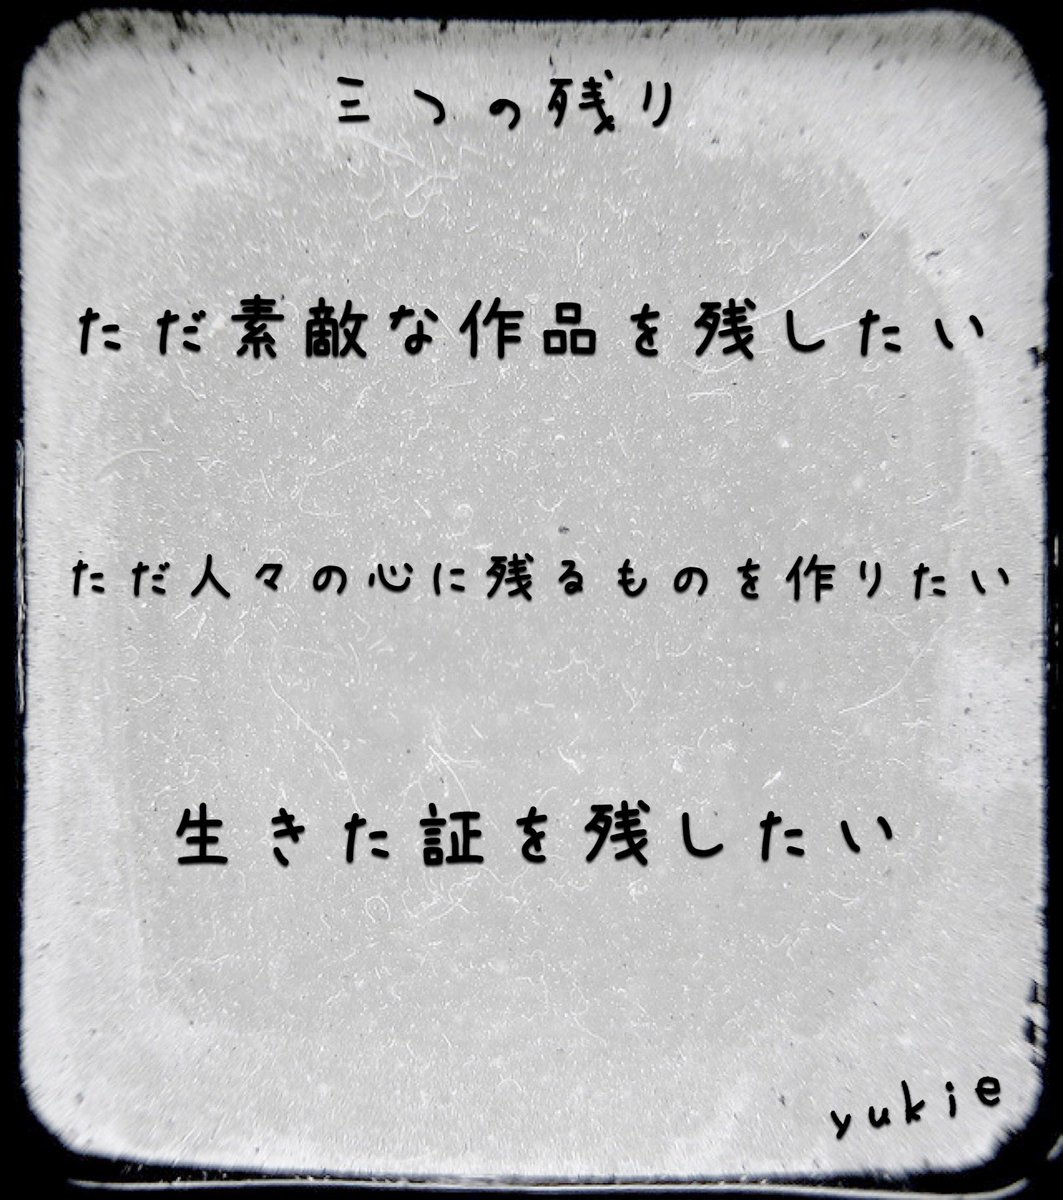 三つの残り
ただ素敵な作品を残したい
ただ人々の心に残るものを作りたい
生きた証を残したい
yukie